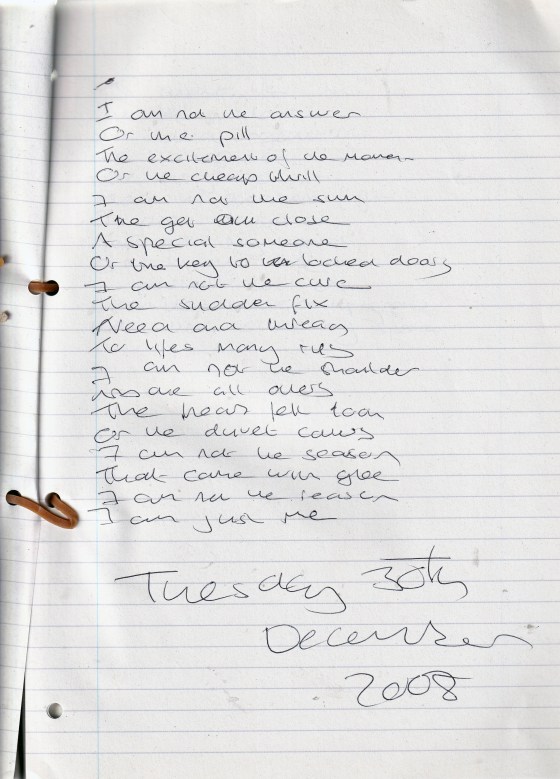 I am not the answer
Or the pill
The excitement of the moment
Or the cheap thrill
I am not the sun
The get close
A special someone
Or the key to locked doors
I am not the cure
The sudden fix
Need and
To lifes many
I am not the shoulder
all others
The heart felt
Or the duvet covers
I am not the season
That came with glee
I am not the reason
I am just me
Tuesday 30th
December
2008